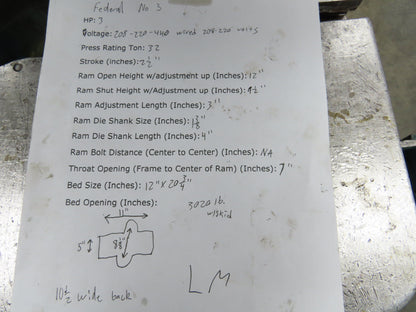 Federal No 3
HP: 3
Voltage: 208-220-440 wired 208-220 volts
Press Rating Ton: 32
Stroke (inches): 2½"
Ram Open Height w/adjustment up (Inches): 12"
Ram Shut Height w/adjustment up (Inches): 9½"
Ram Adjustment Length (Inches): 3"
Ram Die Shank Size (Inches): 1⅜"
Ram Die Shank Length (Inches): 4"
Ram Bolt Distance (Center to Center) (Inches): NA
Throat Opening (Frame to Center of Ram) (Inches): 7"
Bed Size (Inches): 12" x 20¾"
Bed Opening (Inches):
3020 lb.
w/skid
11"
5"
8⅛"
10½ wide back
LM